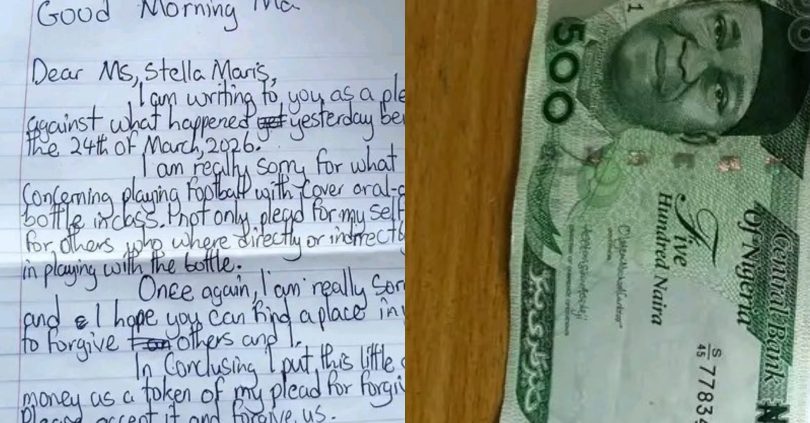 Good Morning Ma
Dear Ms, Stella Maris,
I am writing to you as a ple
against what happened yesterday be
the 24th of March, 2026.
I am really sorry for what
concerning playing football with cover oral-
bottle in class. I not only plead for my self
for others who where directly or indirect
in playing with the bottle.
Once again, I am really sor
and I hope you can find a place in
to forgive others and I.
In Conclusing I put this little
money as a token of my plead for forgi
Please accept it and forgive us.
500
1
Central Bank
Of Nigeria
Five
Hundred Naira
S/45 77834
N